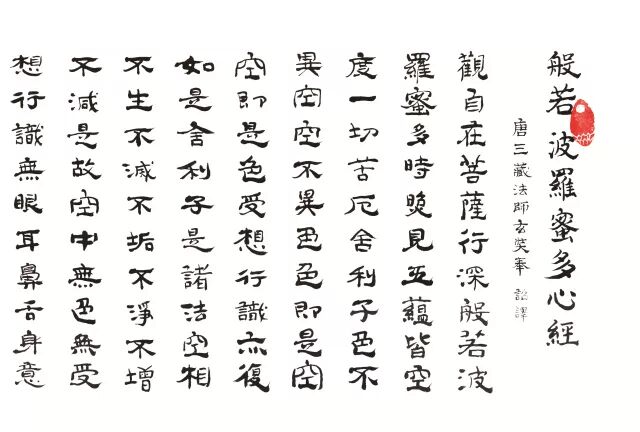 般若波羅蜜多心經
唐三藏法師玄奘奉 詔譯
觀自在菩薩行深般若波
羅蜜多時照見五蘊皆空
度一切苦厄舍利子色不
異空空不異色色即是空
空即是色受想行識亦復
如是舍利子是諸法空相
不生不滅不垢不淨不增
不減是故空中無色無受
想行識無眼耳鼻舌身意